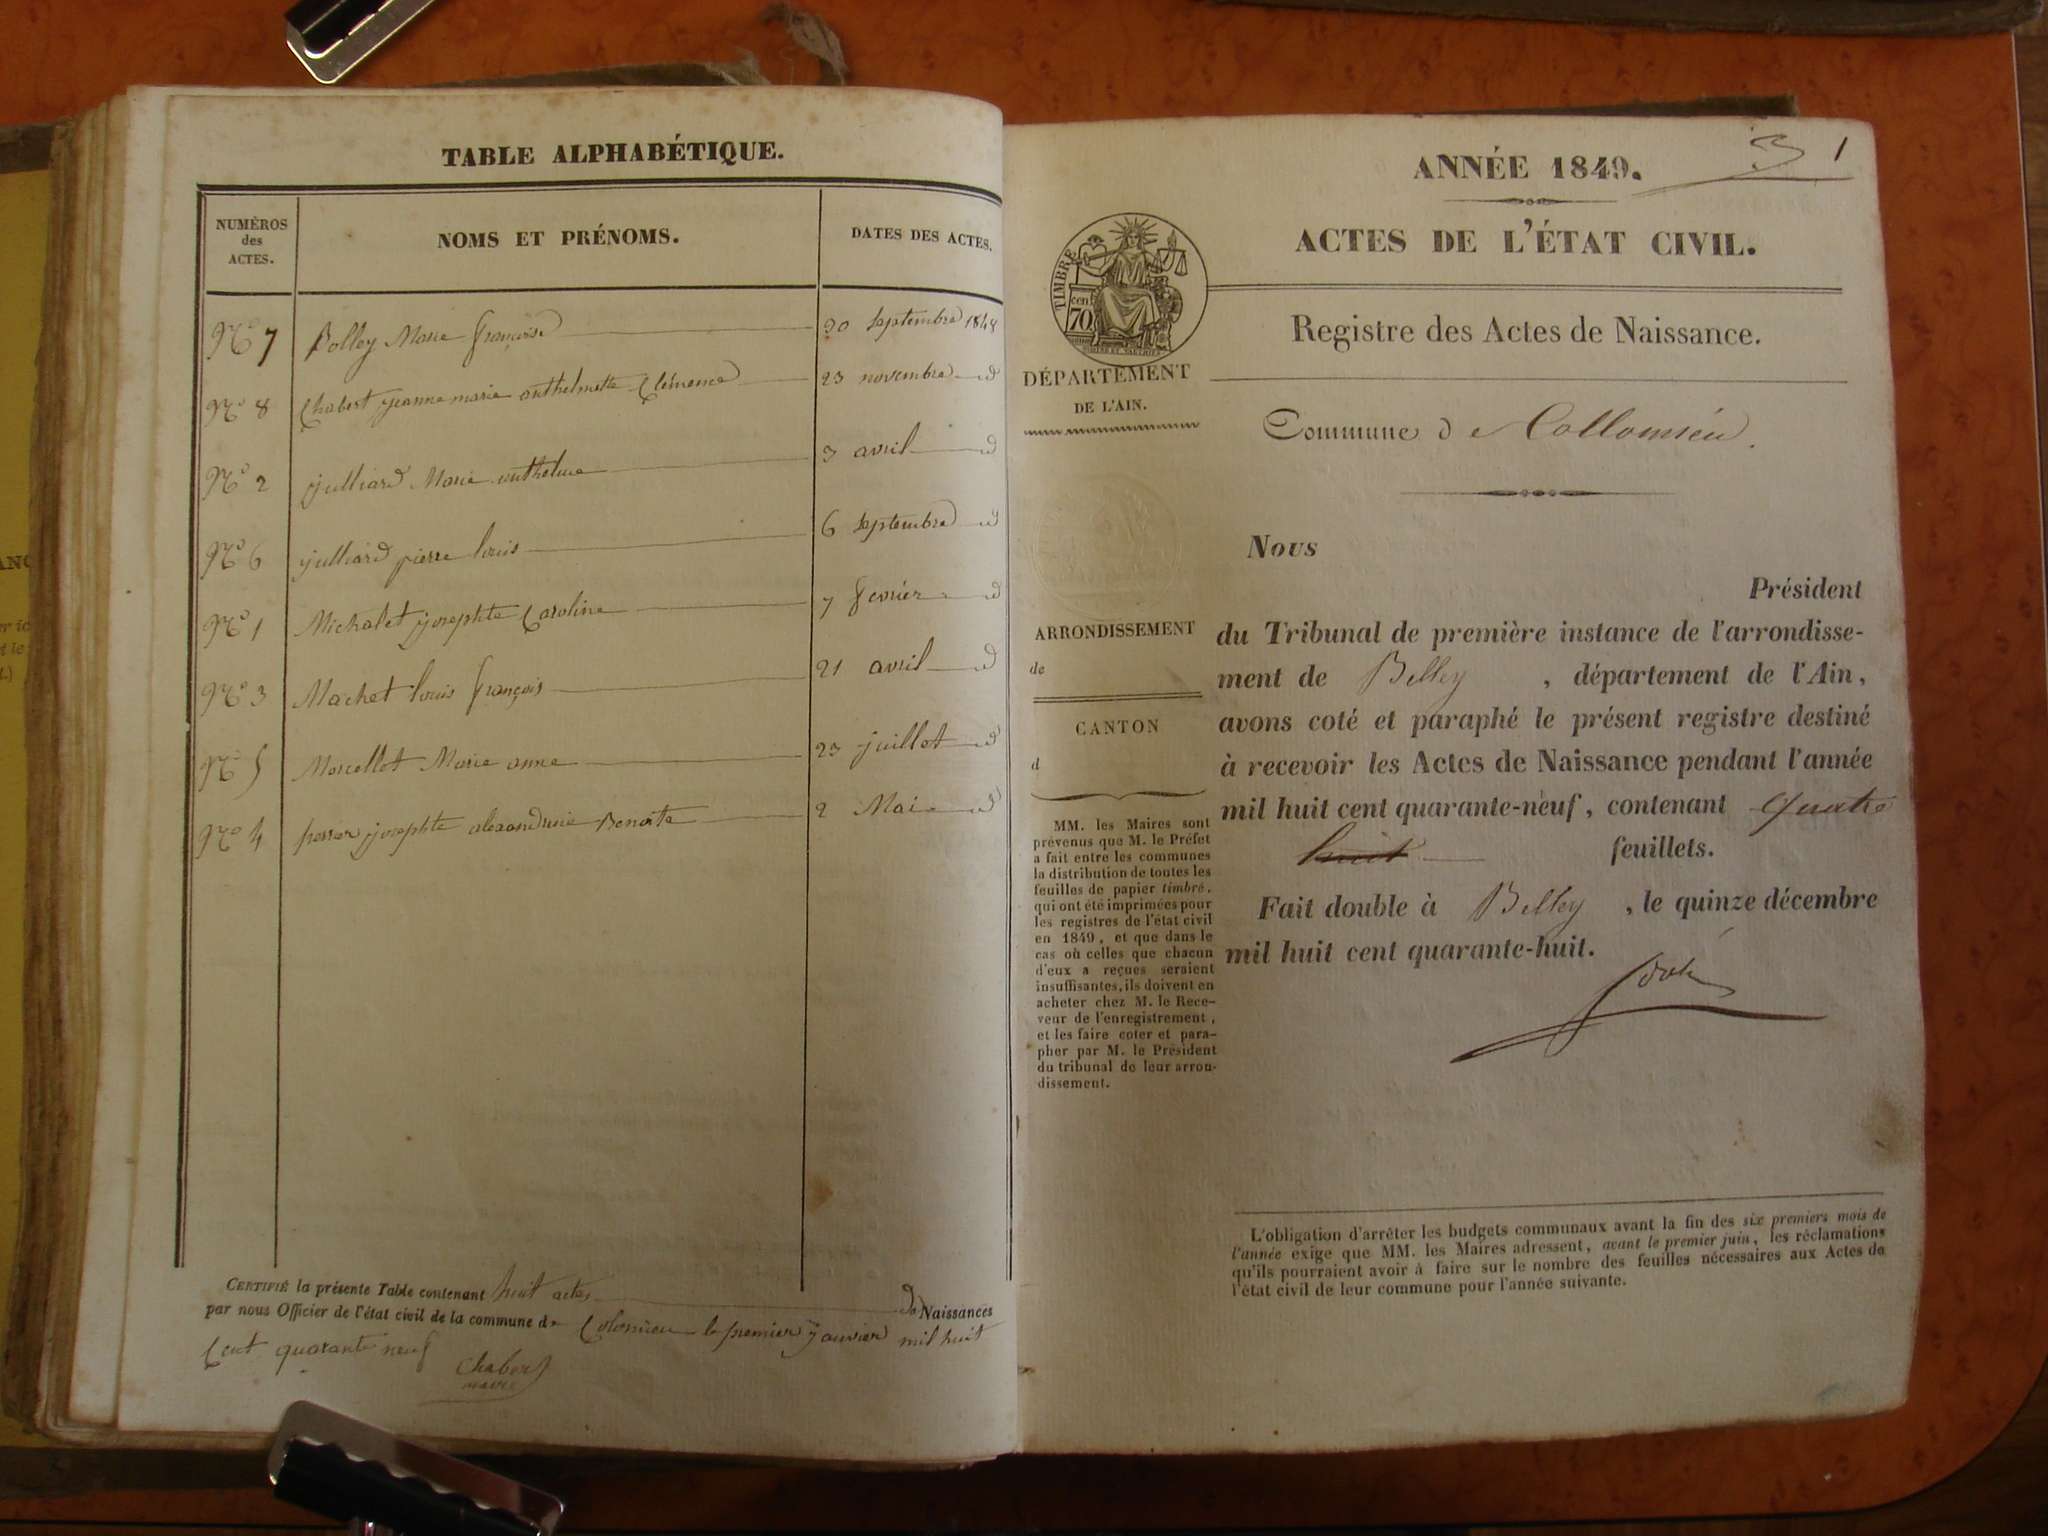 TABLE ALPHABÉTIQUE.
NUMÉROS des ACTES. NOMS ET PRÉNOMS. DATES DES ACTES.
No 7 Bolley Marie françoise 20 septembre 1848
No 8 Chabert jeanne marie anthelmette Clémence 23 novembre d
No 2 julliard Marie anthelme 3 avril d
No 6 julliard pierre louis 6 septembre d
No 1 Michalet josephte Caroline 7 fevrier d
No 3 Machet louis françois 21 avril d
No 5 Morcellet Marie anne 23 juillet d
No 4 perrer josephte alexandrine Benoite 2 Mai d
CERTIFIÉ la présente Table contenant huit actes de Naissances
par nous Officier de l'état civil de la commune de Colomieu le premier janvier mil huit
Cent quarante neuf
Chabert
maire
1
ANNÉE 1849.
ACTES DE L'ÉTAT CIVIL.
TIMBRE
cen
70
Registre des Actes de Naissance.
DÉPARTEMENT
DE L'AIN.
Commune de Collomieu.
ARRONDISSEMENT
de
CANTON
d
MM. les Maires sont
prévenus que M. le Préfet
a fait entre les communes
la distribution de toutes les
feuilles de papier timbré,
qui ont été imprimées pour
les registres de l'état civil
en 1849, et que dans le
cas où celles que chacun
d'eux a reçues seraient
insuffisantes, ils doivent en
acheter chez M. le Rece-
veur de l'enregistrement,
et les faire coter et para-
pher par M. le Président
du tribunal de leur arron-
dissement.
Nous
Président
du Tribunal de première instance de l'arrondisse-
ment de Belley, département de l'Ain,
avons coté et paraphé le présent registre destiné
à recevoir les Actes de Naissance pendant l'année
mil huit cent quarante-neuf, contenant quatre
huit feuillets.
Fait double à Belley, le quinze décembre
mil huit cent quarante-huit.
L'obligation d'arrêter les budgets communaux avant la fin des six premiers mois de
l'année exige que MM. les Maires adressent, avant le premier juin, les réclamations
qu'ils pourraient avoir à faire sur le nombre des feuilles nécessaires aux Actes de
l'état civil de leur commune pour l'année suivante.